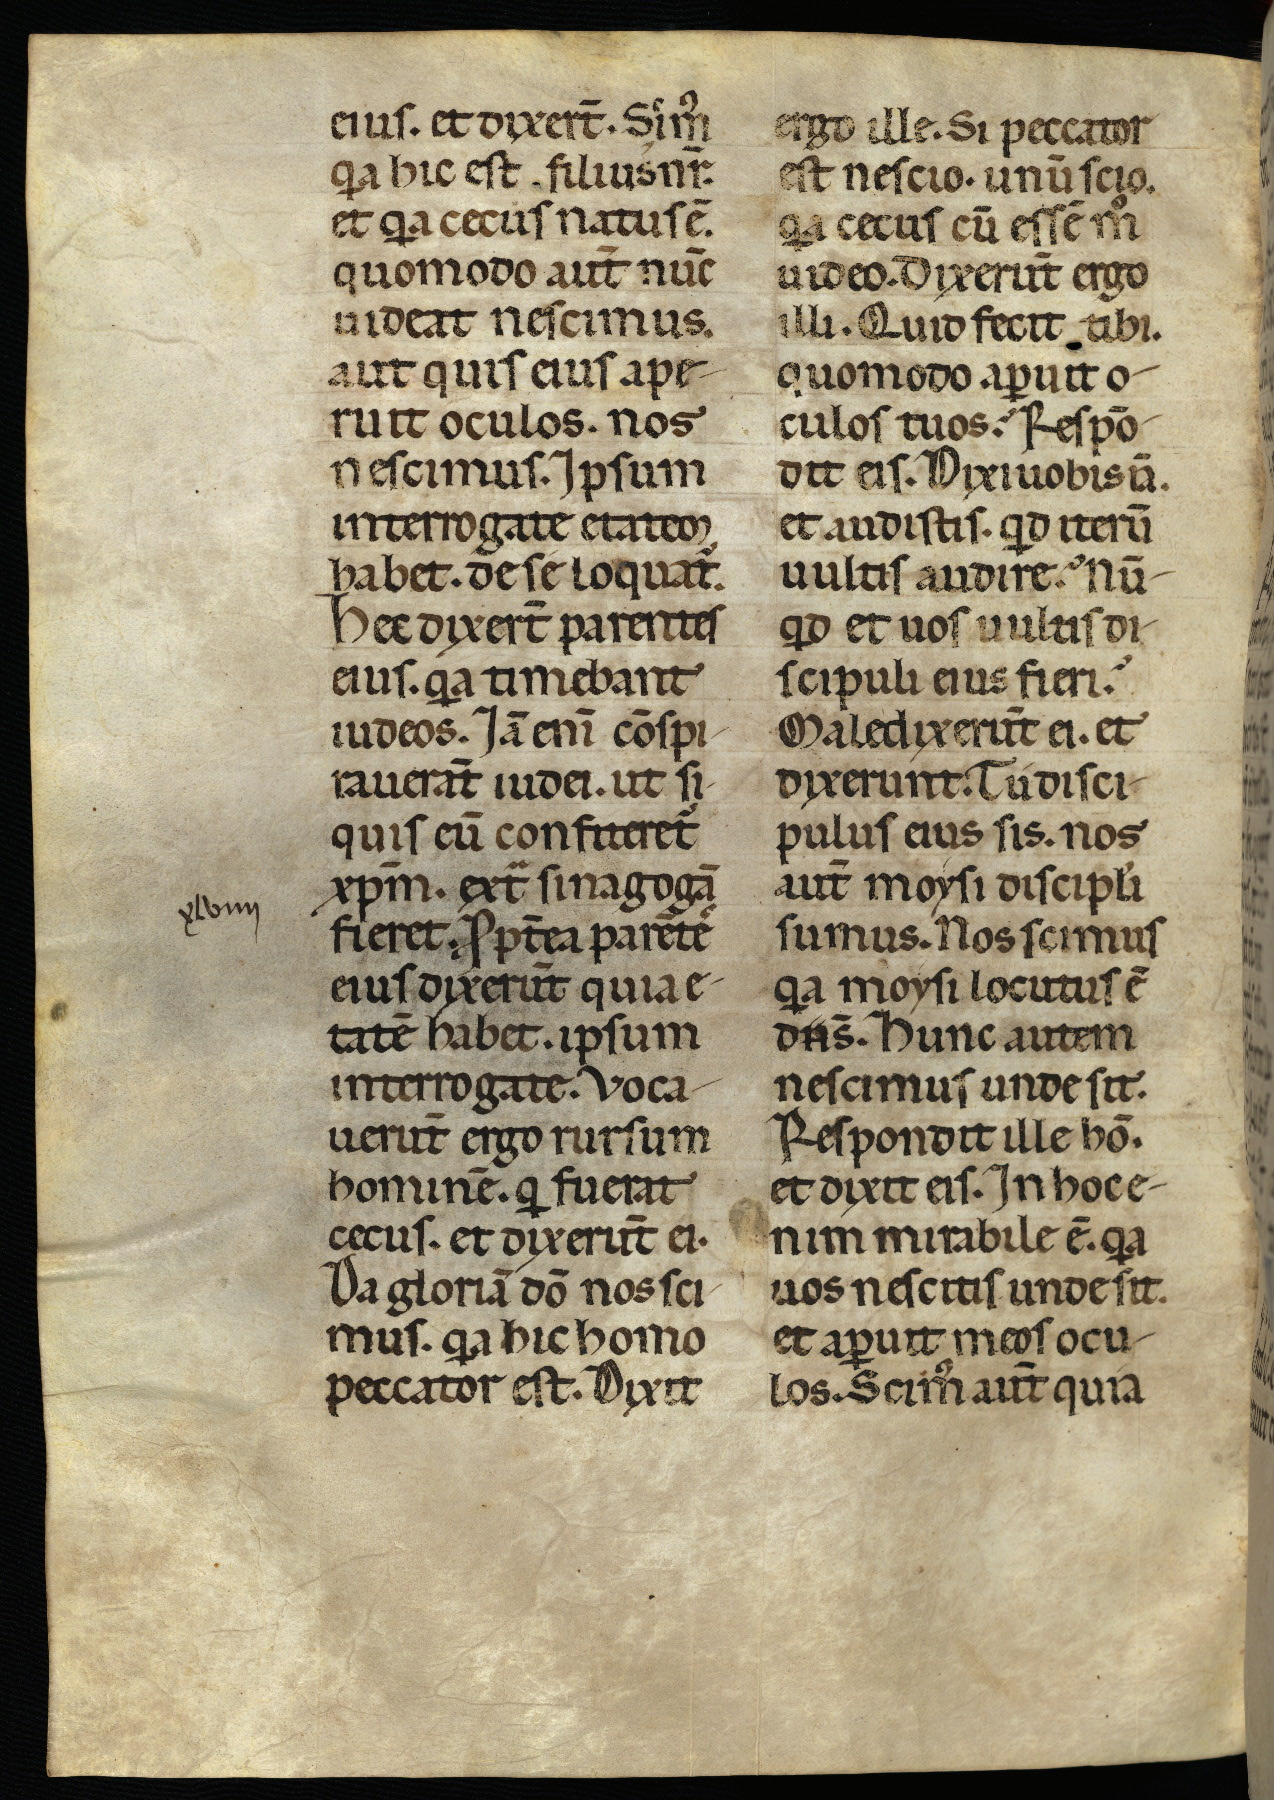 eius. et dixert̄. Scim᷒
qa hic est. filius nr̄.
et qa cecus natus ē.
quomodo aut̄ nūc
uideat nescimus.
aut quis eius ape-
ruit oculos. nos
nescimus. Ipsum
interrogate etatem
habet. de se loquat᷒.
Hec dixert̄ parentes
eius. qa timebant
iudeos. Jā eni᷒ cōspi-
rauerāt iudei. ut si-
quis eū confiteret᷒
xp̄m. ext̄ sinagogā
fieret. Ꝓpt̄ea parēte᷒
xlviiii
eius dixerūt quia e-
tatē habet. ipsum
interrogate. Voca-
uerūt ergo rursum
hominē. q fuerat
cecus. et dixerūt ei.
Da gloriā dō nos sci-
mus. qa hic homo
peccator est. Dixit
ergo ille. Si peccator
est nescio. unū scio.
qa cecus cū essē m̊
uideo. Dixerūt ergo
illi. Quid fecit tibi.
quomodo aꝑuit o-
culos tuos. Respō-
dit eis. Dixi uobis ū.
et audistis. qd iterū
uultis audire. Nū-
qd et uos uultis di-
scipuli eius fieri.
Maledixerūt ei. et
dixerunt. Tu disci-
pulus eius sis. nos
aut̄ moysi discipl̓i
sumus. Nos scimus
qa moysi locutus ē
dn̄s. Hunc autem
nescimus unde sit.
Respondit ille hō.
et dixit eis. In hoc e-
nim mirabile ē. qa
uos nescitis unde sit.
et aꝑuit meos ocu-
los. Scim᷒ aut̄ quia